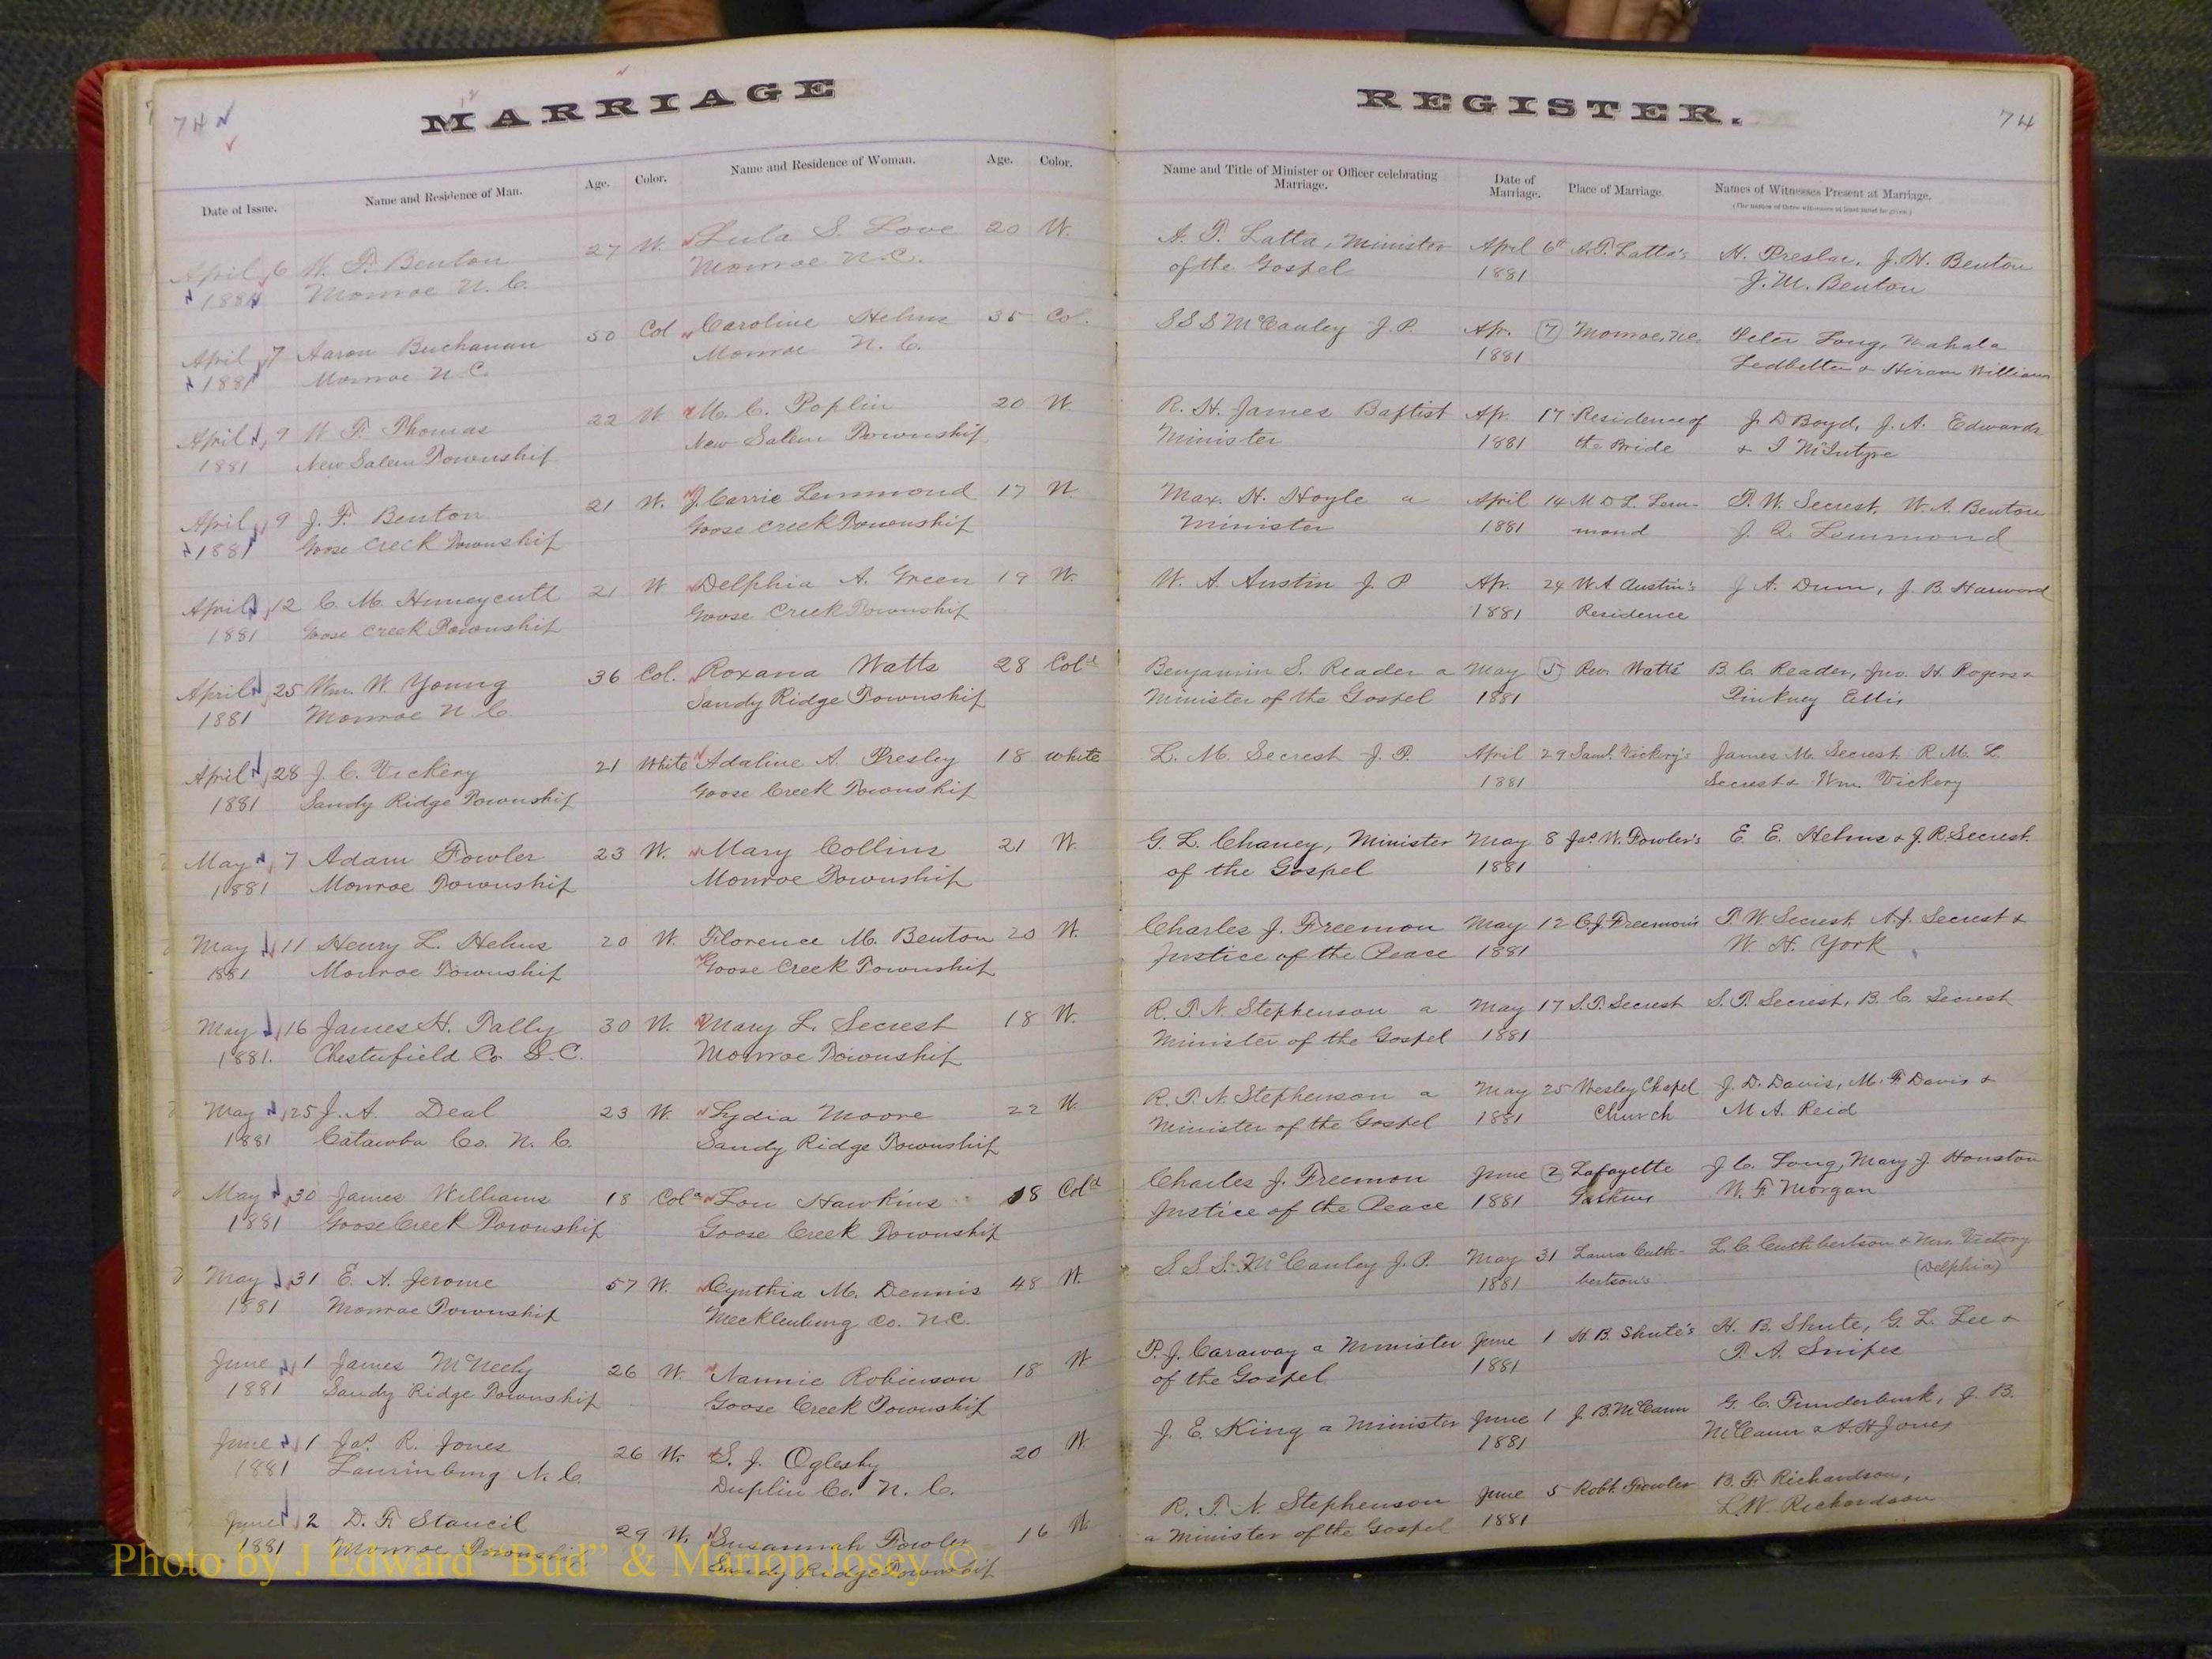 MARRIAGE REGISTER.
74 74
Date of Issue. Name and Residence of Man. Age. Color. Name and Residence of Woman. Age. Color. Name and Title of Minister or Officer celebrating Marriage. Date of Marriage. Place of Marriage. Names of Witnesses Present at Marriage.
(The names of three witnesses at least must be given.)
April 6 W. F. Benton 27 W. Lula S. Love 20 W. A. T. Latta, Minister April 6th A.T. Latta's H. Preslar, J.H. Benton
1881 Monroe N.C. Monroe N.C. of the Gospel 1881 J.M. Benton
April 7 Aaron Buchanan 50 Col Caroline Helms 35 Col. S S S McCauley J.P. Apr. 7 Monroe, N.C. Peter Long, Mahala
1881 Monroe N.C. Monroe N.C. 1881 Ledbetter & Hiram Williams
April 9 W F. Thomas 22 W. M. C. Poplin 20 W. R. H. James Baptist Apr. 17 Residence of J. D Boyd, J. A. Edwards
1881 New Salem Township New Salem Township Minister 1881 the Bride & McIntyre
April 9 J. F. Benton 21 W. J. Carrie Lemmond 17 W. Max. H. Hoyle a April 14 M D L. Lem-
1881 Goose Creek Township Goose Creek Township Minister 1881 mond T. W. Secrest, W. A. Benton
J. Q. Lemmond
April 12 C. M. Huneycutt 21 W Delphia A. Green 19 W. W. A. Austin J. P Apr. 24 W. A Austin's J A. Dunn, J. B. Harwood
1881 Goose Creek Township Goose Creek Township 1881 Residence
April 25 Wm. W. Young 36 Col. Roxana Watts 28 Cold Benjamin S. Reader a May 5 Watts B. C. Reader, Jno. H. Rogers &
1881 Monroe N C Sandy Ridge Township Minister of the Gospel 1881 Pinkney Ellis
April 28 J. C. Vickery 21 White Adaline A. Presley 18 white L. M. Secrest J. P. April 29 Saml. Vickery's James M. Secrest, R M. L.
1881 Sandy Ridge Township Goose Creek Township 1881 Secrest & Wm. Vickery
May 7 Adam Fowler 23 W. Mary Collins 21 W. G. L. Chaney, Minister May 8 Jas. W. Fowler's E. E. Helms & J. R. Secrest.
1881 Monroe Township Monroe Township of the Gospel 1881
May 11 Henry L. Helms 20 W. Florence M. Benton 20 W. Charles J. Freemon May 12 C.J. Freemon's T. W Secrest, A.J. Secrest &
1881 Monroe Township Goose Creek Township Justice of the Peace 1881 W. H. York
May 16 James H. Tally 30 W. Mary L. Secrest 18 W. R. T. N. Stephenson a May 17 S.T. Secrest S. T. Secrest, B. C. Secrest
1881. Chesterfield Co S.C. Monroe Township Minister of the Gospel 1881
May 25 J. A. Deal 23 W. Lydia Moore 22 W. R. T. N. Stephenson a May 25 Wesley Chapel J. D. Davis, M. F. Davis &
1881 Catawba Co. N. C. Sandy Ridge Township Minister of the Gospel 1881 Church M A. Reid
May 30 James Williams 18 Cold Lou Hawkins 18 Cold Charles J. Freemon June 2 Lafayette J C. Long, Mary J. Houston
1881 Goose Creek Township Goose Creek Township Justice of the Peace 1881 W. F. Morgan
May 31 E. A. Jerome 57 W. Cynthia M. Dennis 48 W. S. S. S. McCauley J. P. May 31 Laura Cuth- L. C. Cuthbertson &
1881 Monroe Township Mecklenburg Co. N.C. 1881 bertson's (Delphia)
June 1 James McNeely 26 W. Nannie Robinson 18 W P. J. Caraway a Minister June 1 H. B. Shute's H. B. Shute, G. L. Lee &
1881 Sandy Ridge Township Goose Creek Township of the Gospel 1881 T. A. Snipes
June 1 Jas. R. Jones 26 W. S. J. Oglesby 20 W. J. E. King a Minister June 1 J. B. McCann G. C. Funderburk, J. B.
1881 Laurinburg N. C. Duplin Co. N. C. 1881 McCann & A. H Jones
June 2 D. F. Stancil 29 W. Susannah Fowler 16 W R. T. N. Stephenson June 5 Robt. Fowler B. F. Richardson,
1881 Monroe Township Sandy Ridge Township a Minister of the Gospel 1881 L. W. Richardson
Photo by J Edward "Bud" & Marion Josey ©